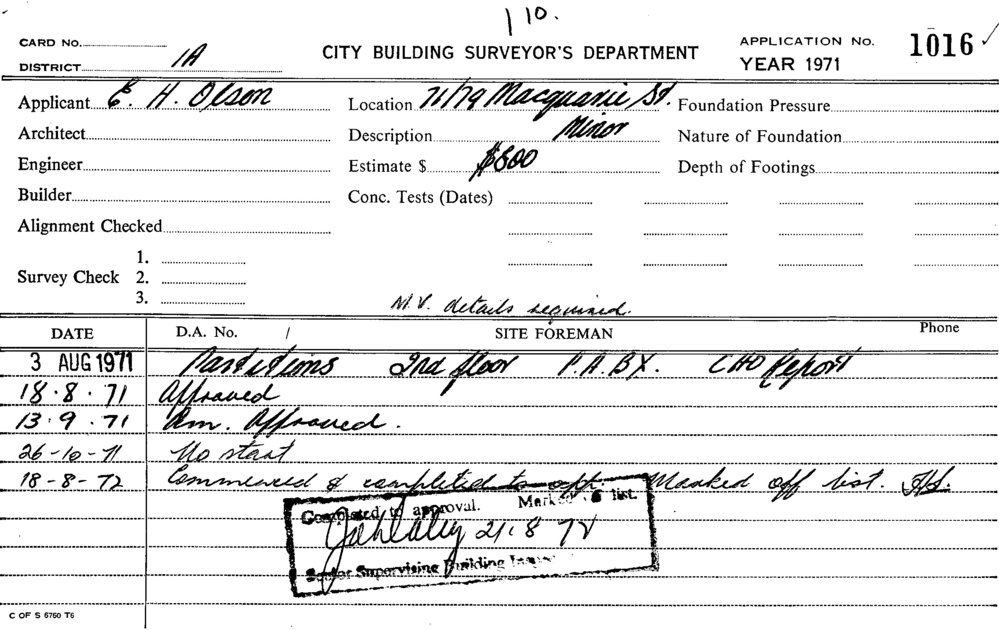 110.
CARD No.
DISTRICT 1A
CITY BUILDING SURVEYOR'S DEPARTMENT
APPLICATION No. 1016 ✓
YEAR 1971
Applicant E. H. Olson Location 71/79 Macquarie St. Foundation Pressure
Architect Description Minor Nature of Foundation
Engineer Estimate $ $800 Depth of Footings
Builder Conc. Tests (Dates)
Alignment Checked
1.
Survey Check 2.
3.
M.V. details required.
DATE D.A. No. / SITE FOREMAN Phone
3 AUG 1971 Partitions 2nd floor P.A.BX. CHO Report
18.8.71 Approved
13.9.71 Am. Approved.
26-10-71 No start
18-8-72 Commenced & completed to app. Marked off list.
Completed to approval. Marked list.
21.8 72
Senior Supervising Building
C OF S 6760 T6